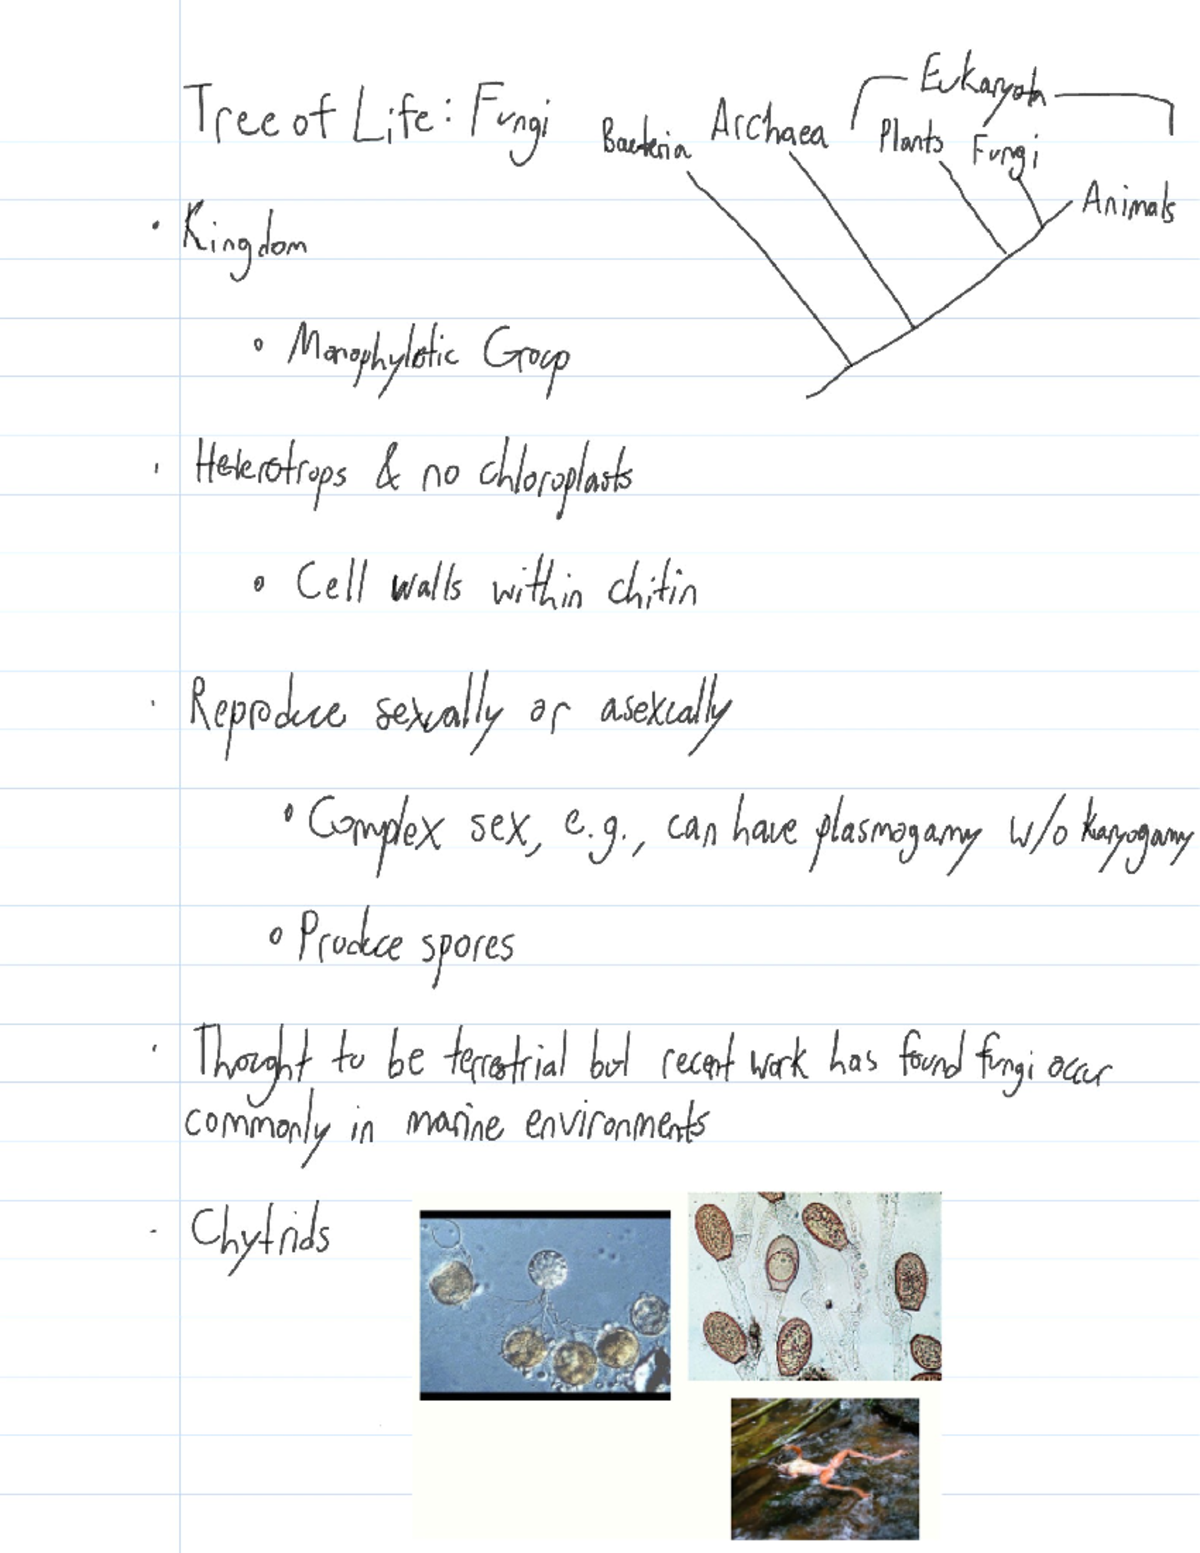 Tree of Life: Fungi
Eukaryota
Bacteria Archaea Plants Fungi
Animals
• Kingdom
◦ Monophyletic Group
• Heterotrops & no chloroplasts
◦ Cell walls within chitin
• Reproduce sexually or asexually
◦ Complex sex, e.g., can have plasmogamy w/o karyogamy
◦ Produce spores
• Thought to be terrestrial but recent work has found fungi occur
commonly in marine environments
• Chytrids